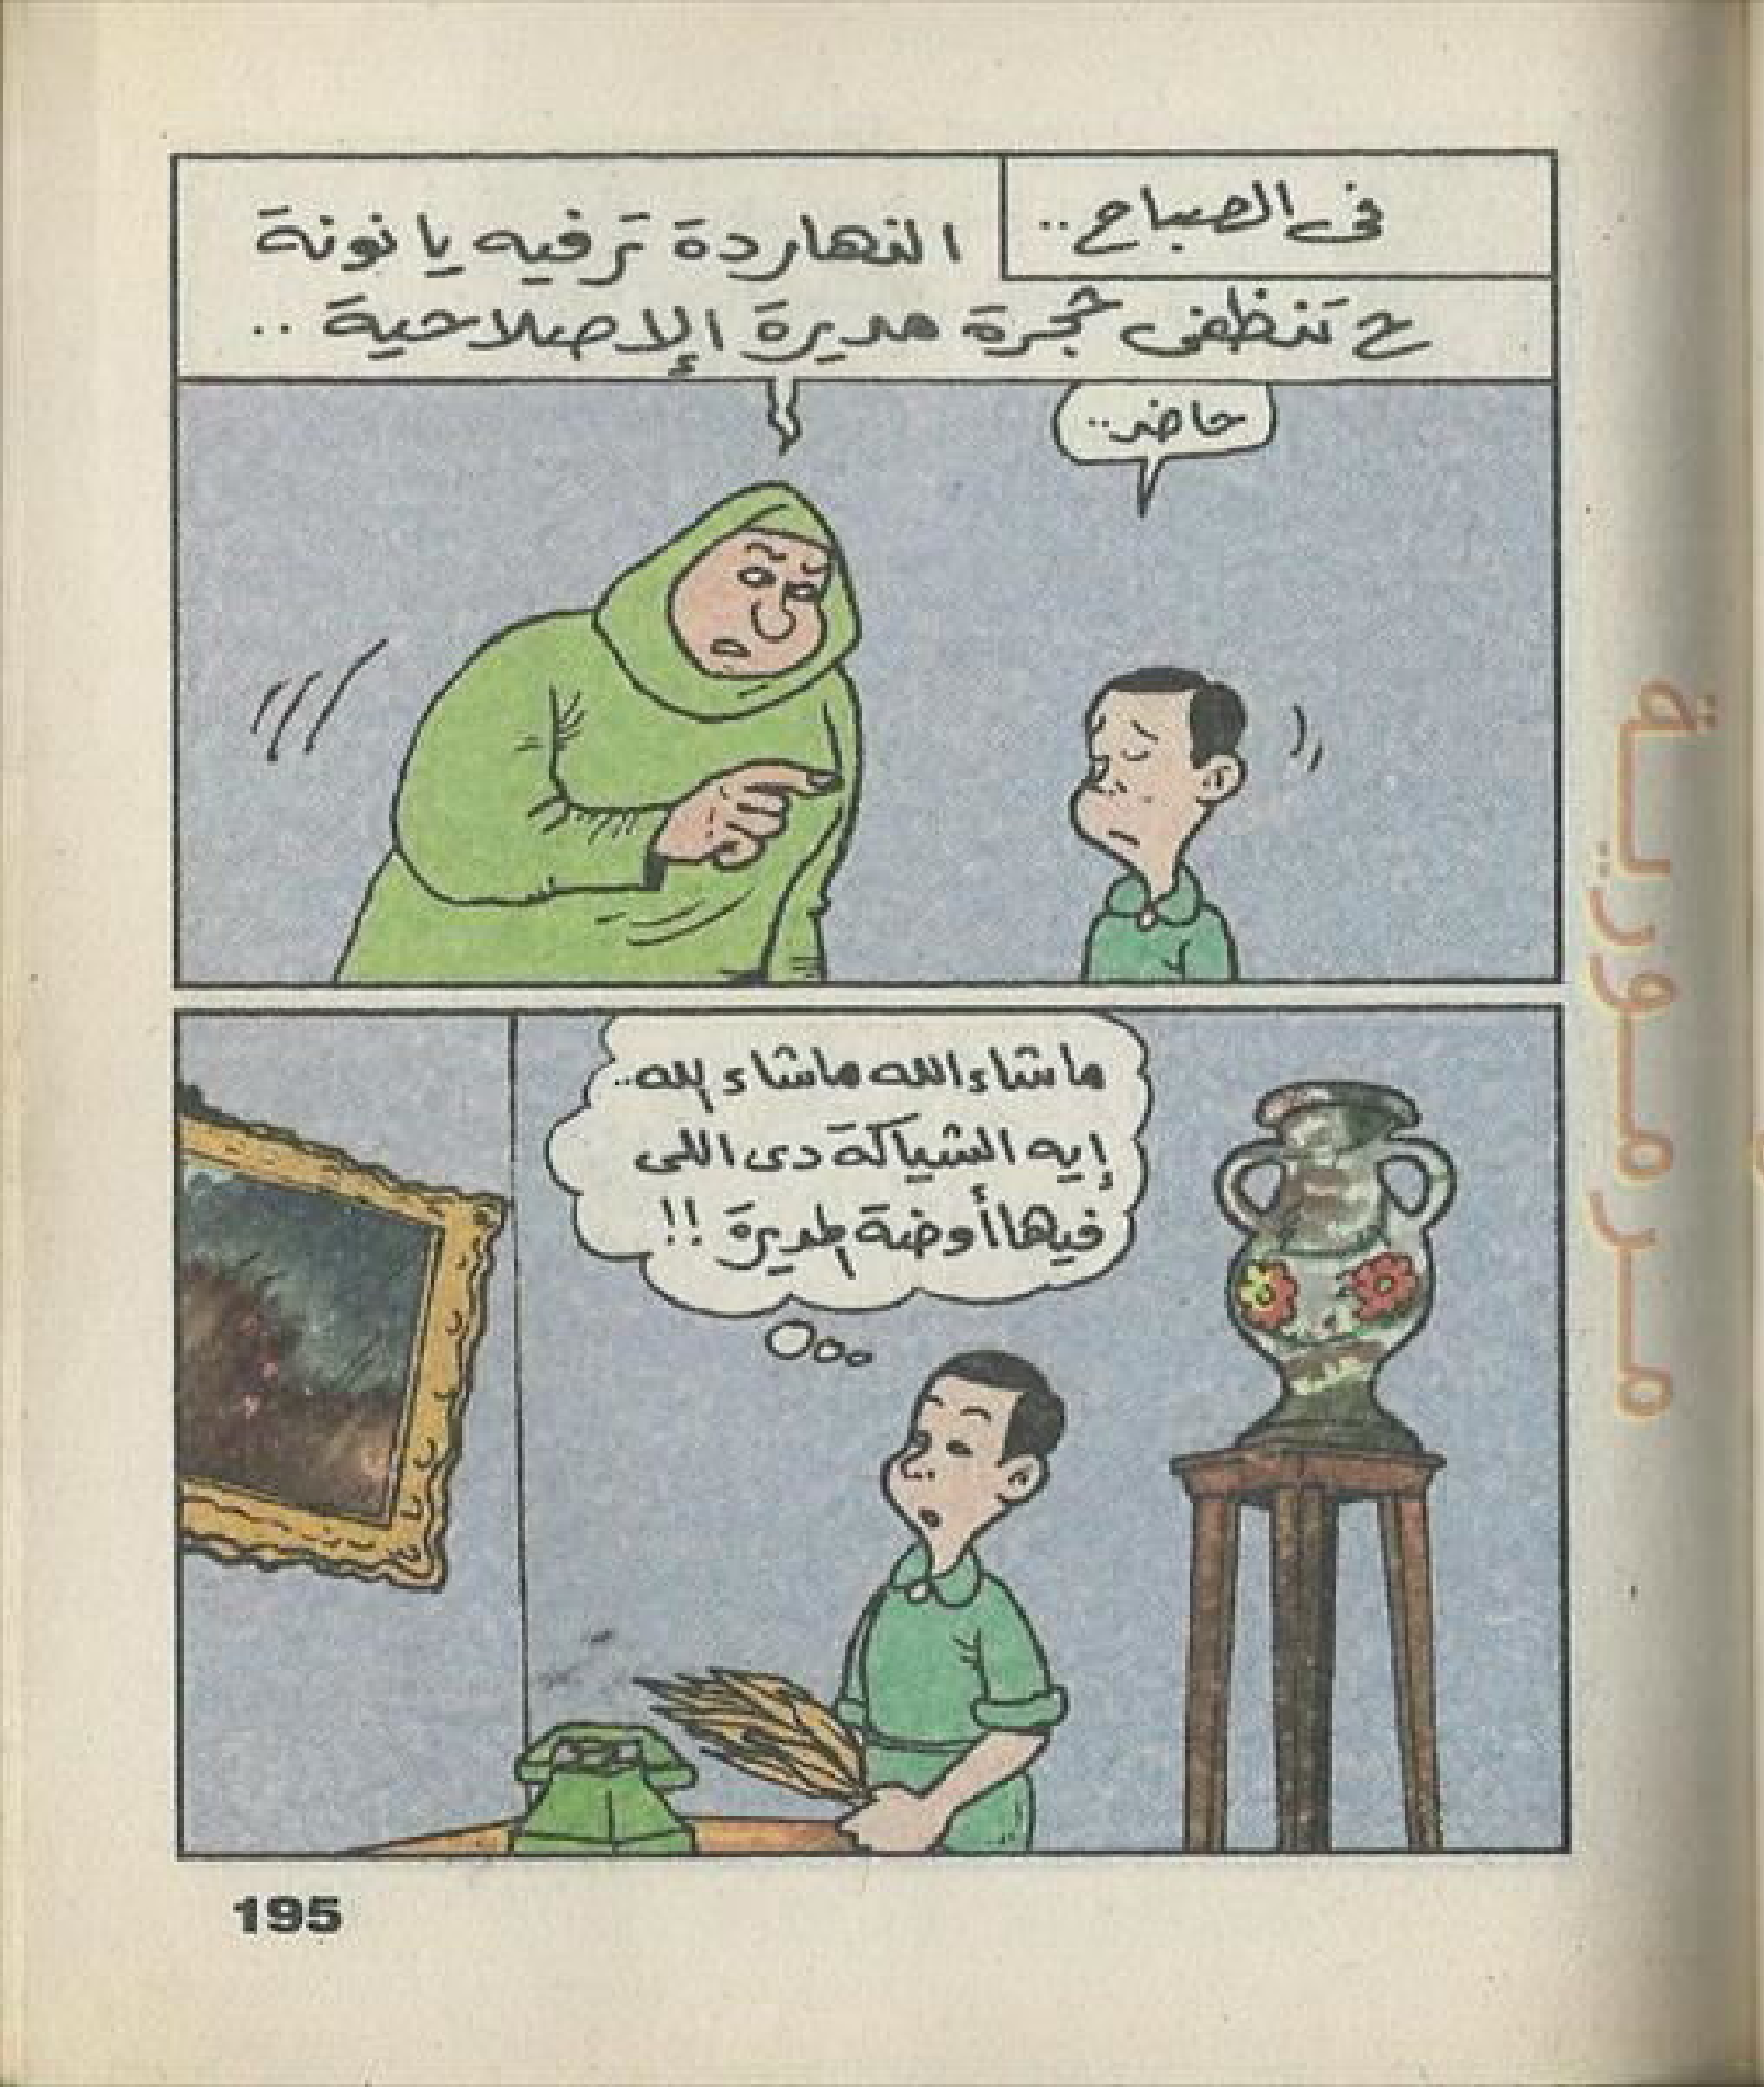 فى الصباح..
النهاردة ترفيه يا نونة
ح تنظفى حجرة مديرة الإصلاحية..
حاضر..
ما شاء الله ما شاء الله..
إيه الشياكة دى اللى
فيها أوضة المديرة!!
مرمورية
195